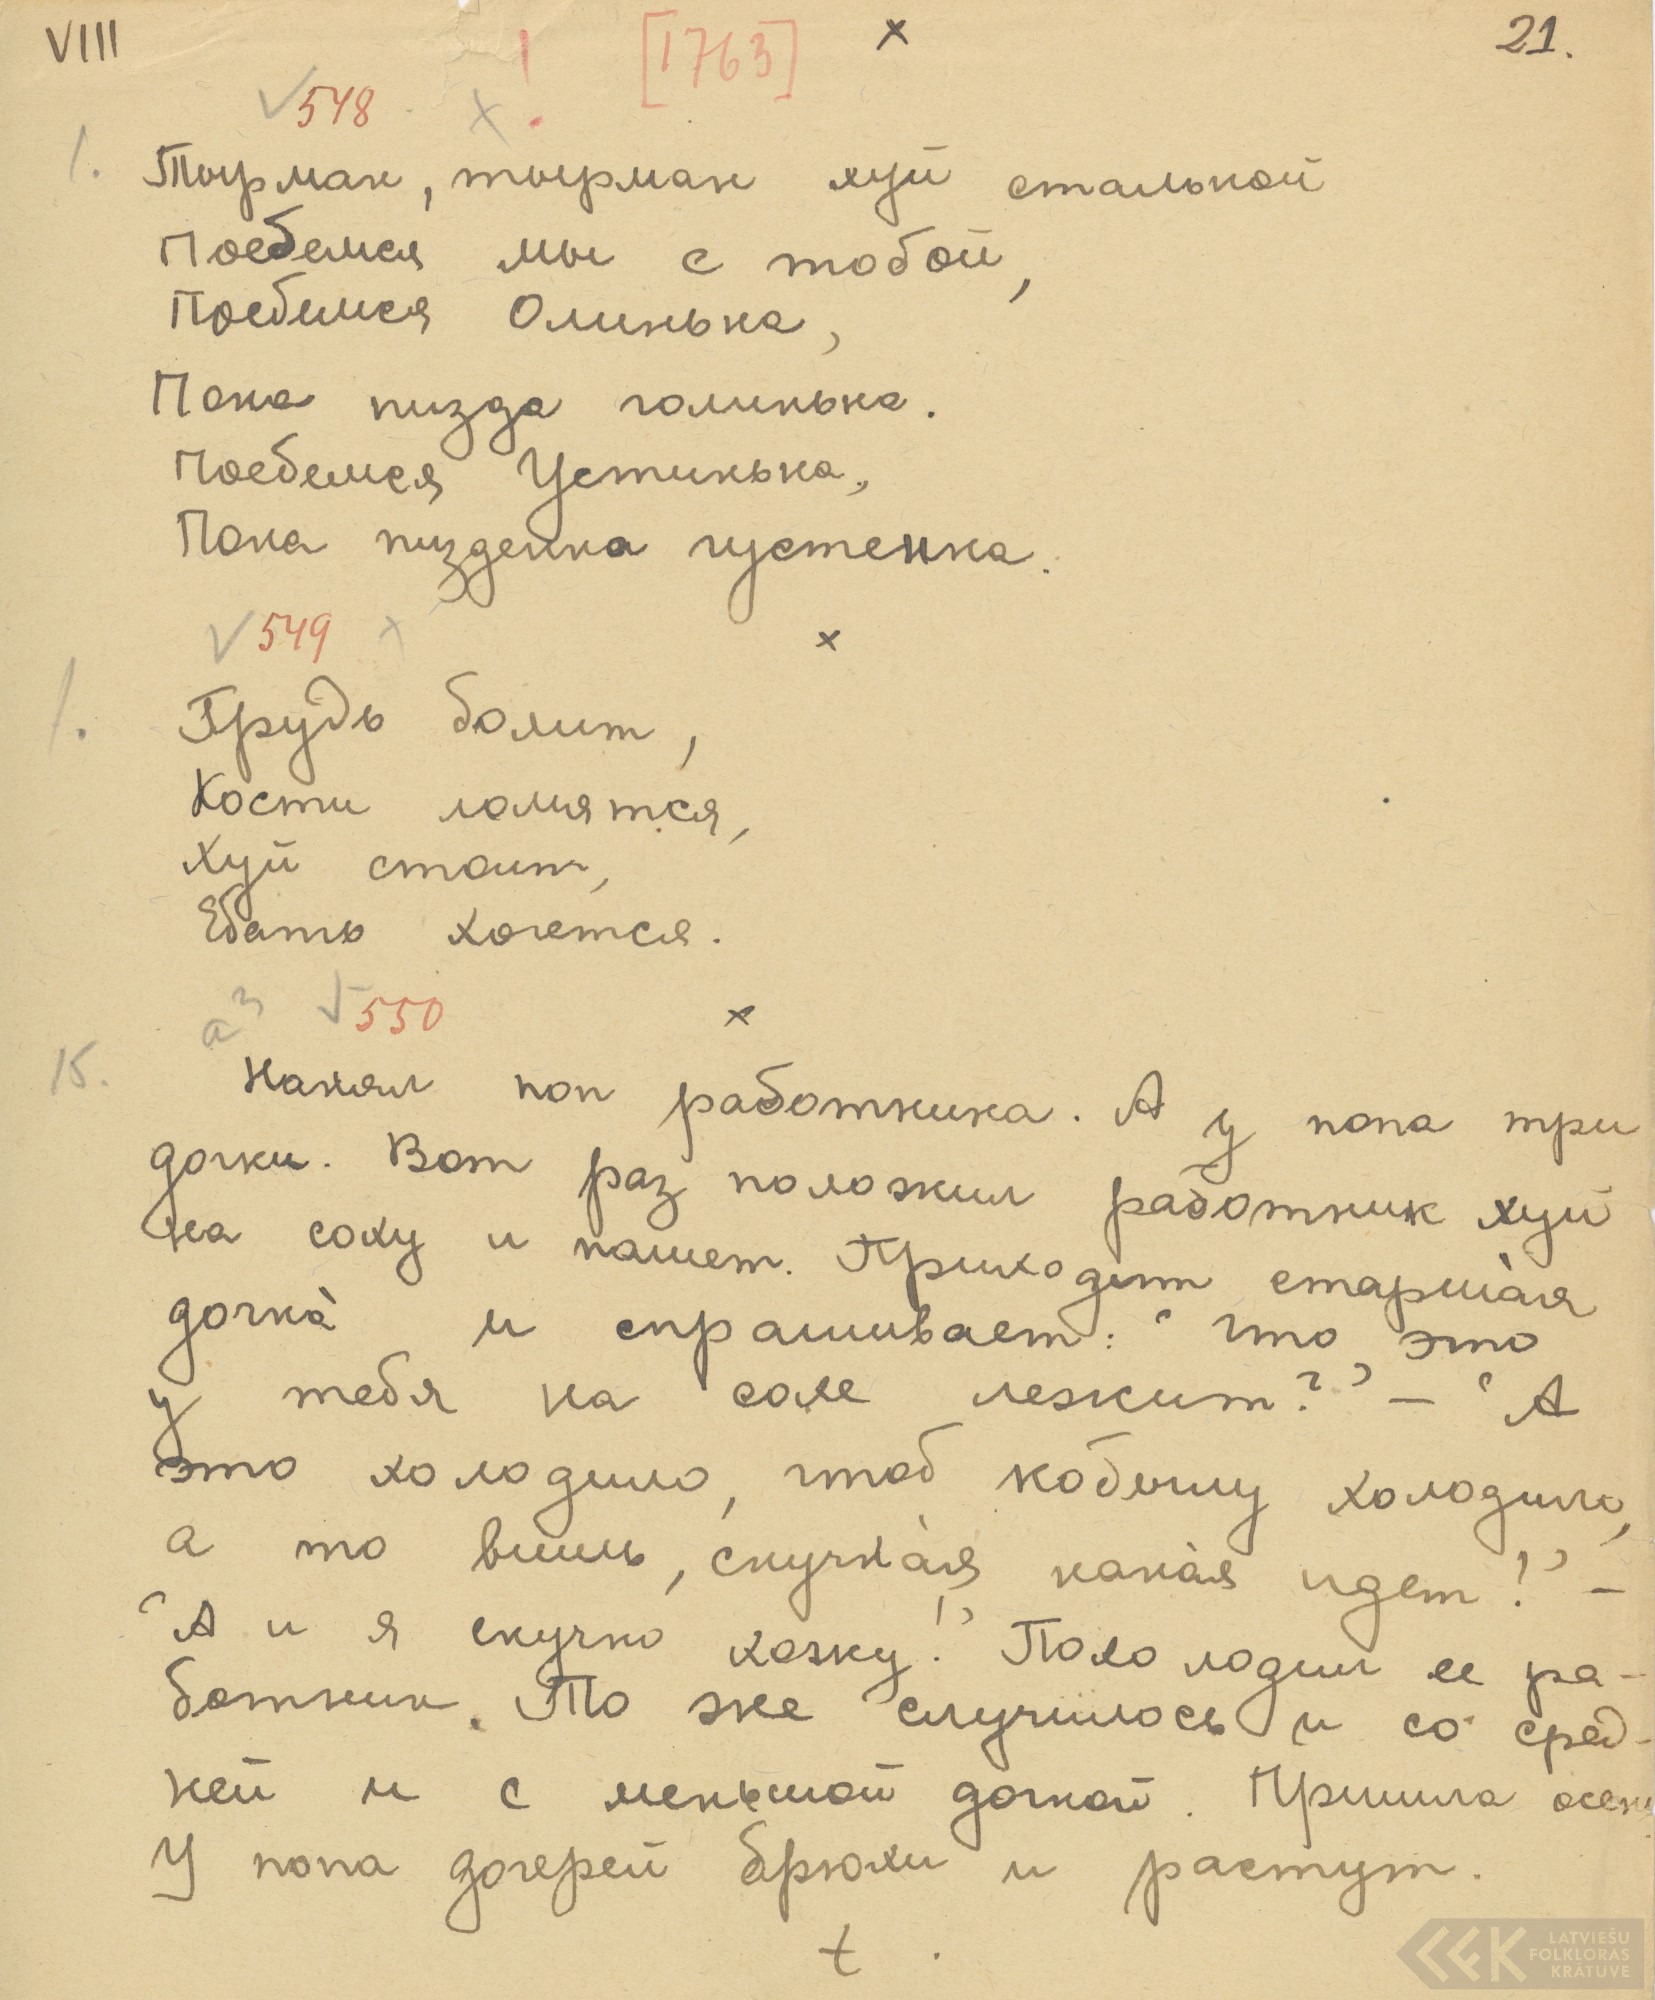 VIII [1763] × 21.
√548 × !
1. Тырман, тырман хуй стальной
Поебемся мы с тобой,
Поебемся Олинька,
Пока пизда голинька.
Поебемся Устинька,
Пока пизденка густенка.
√549 × ×
1. Грудь болит,
Кости ломятся,
Хуй стоит,
Ебать хочется.
а³ √550 ×
15. Нанял поп работника. А у попа три
дочки. Вот раз положил работник хуй
на соху и пашет. Приходит старша̀я
дочка̀ и спрашивает: "Что это
у тебя на сохе лежит?" – "А
это холодило, чтоб кобылу холодило,
а то вишь, скучна̀я кака̀я идет!" –
"А и я скучно хожу!" Похолодил ее ра-
ботник. То же случилось и со сред-
ней и с меньшой дочкой. Пришла осень
У попа дочерей брюхи и растут.
t
LATVIEŠU
FOLKLORAS
KRĀTUVE